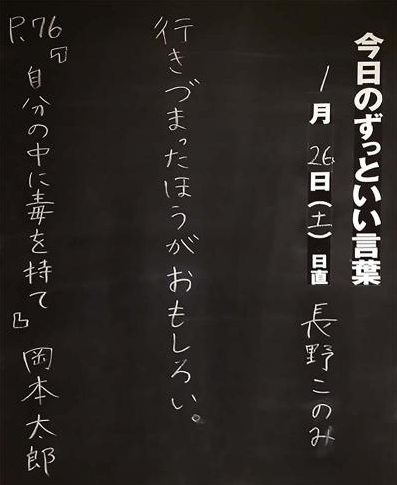 今日のずっといい言葉
1月26日(土)日直 長野このみ
行きづまったほうがおもしろい。
P.76『自分の中に毒を持て』岡本太郎